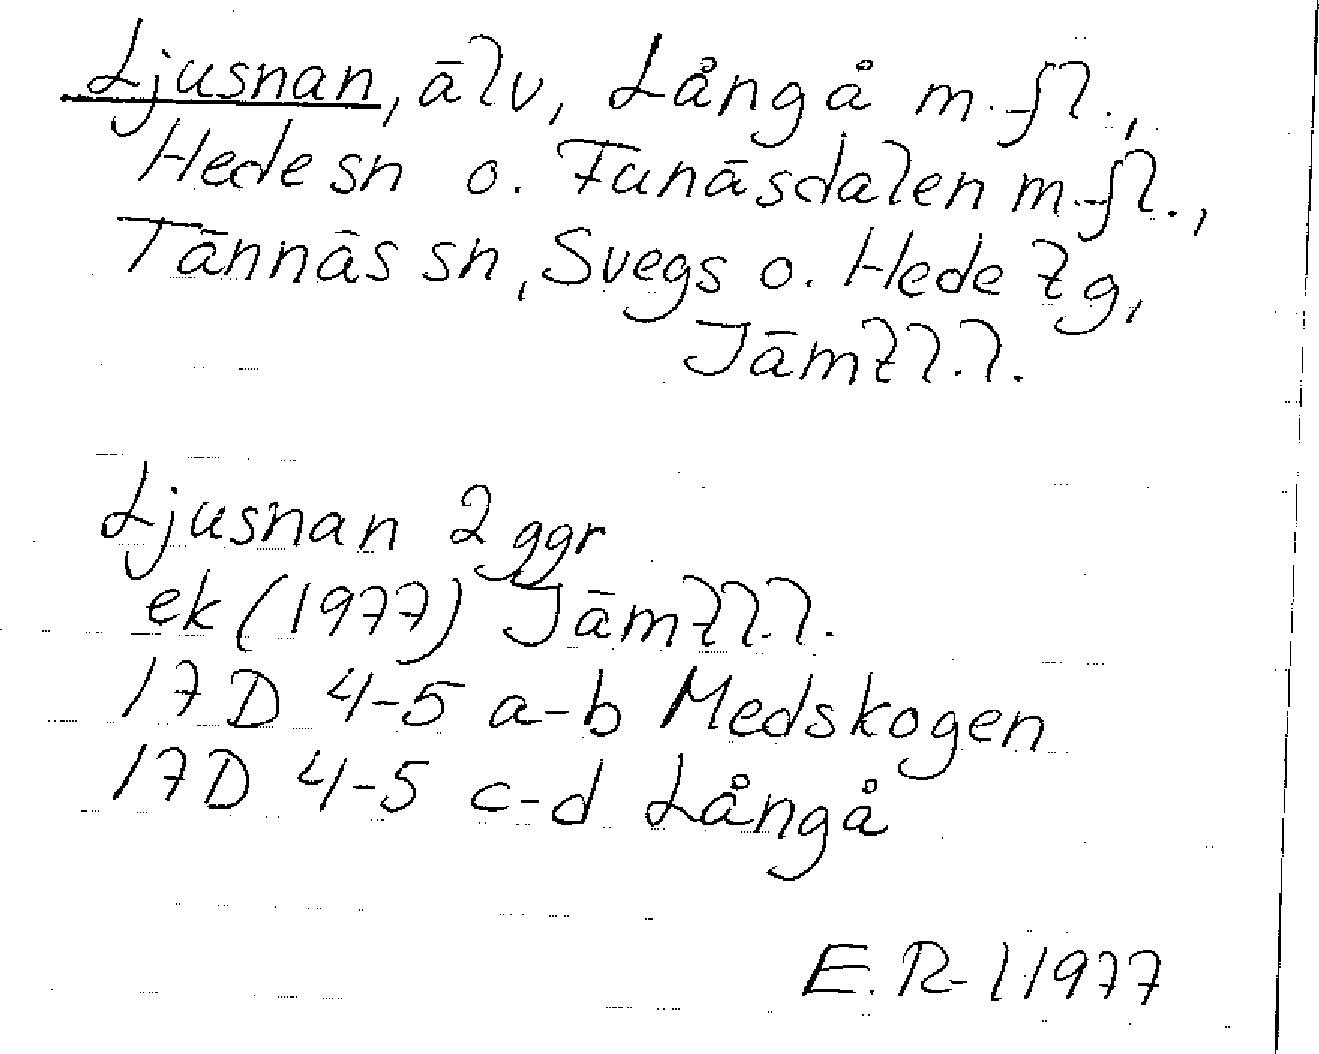 Ljusnan, älv, Långå m.fl.,
Hede sn o. Funäsdalen m.fl.,
Tännäs sn, Svegs o. Hede tg,
Jämtl.l.
Ljusnan 2 ggr
ek (1977) Jämtl.l.
17D 4-5 a-b Medskogen
17D 4-5 c-d Långå
E. R-l 1977